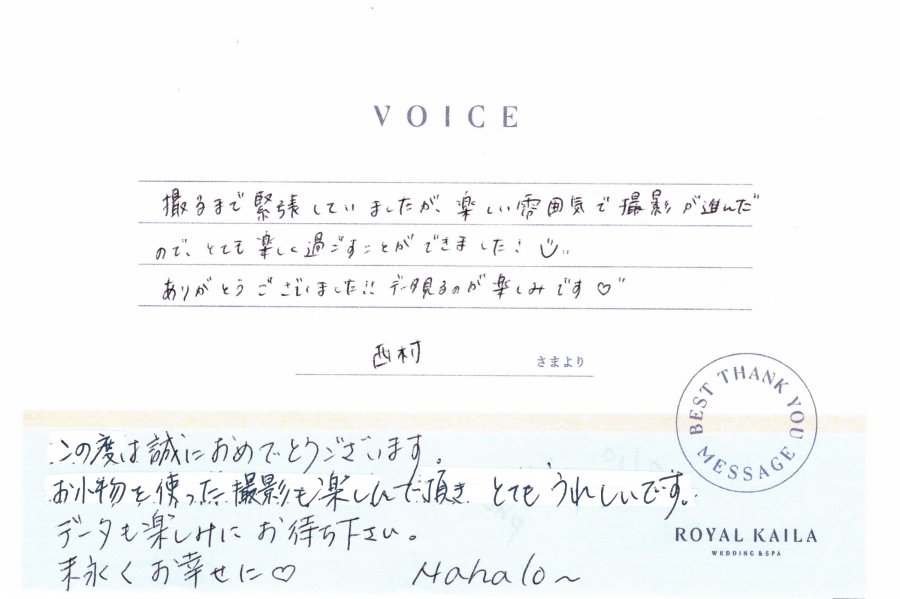 VOICE
撮るまで緊張していましたが、楽しい雰囲気で撮影が進んだ
ので、とても楽しく過ごすことができました!
ありがとうございました!! データ見るのが楽しみです♡
西村 さまより
BEST THANK YOU MESSAGE
この度は誠におめでとうございます。
お小物を使った撮影も楽しんで頂き とてもうれしいです。
データも楽しみにお待ち下さい。
末永くお幸せに♡ Mahalo~
ROYAL KAILA
WEDDING & SPA